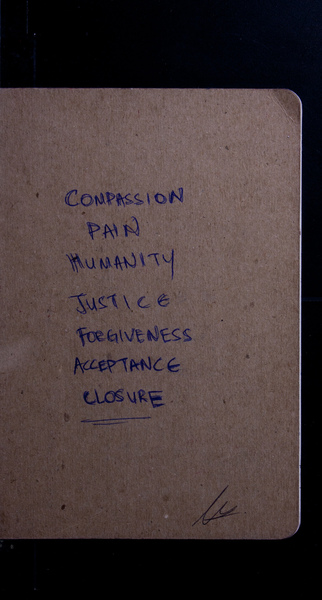 COMPASSION
PAIN
HUMANITY
JUSTICE
FORGIVENESS
ACCEPTANCE
CLOSURE